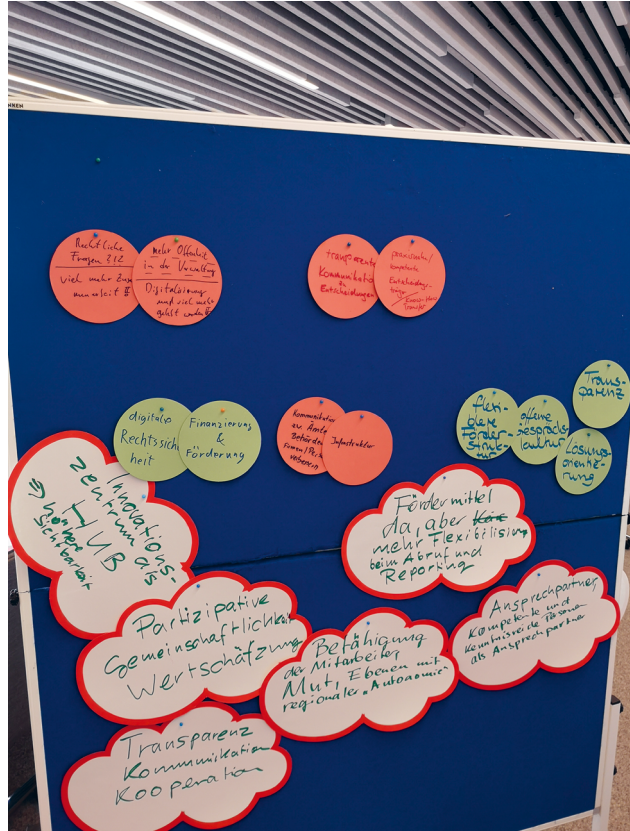 Rechtliche
Fragen ???
viel mehr
mehr Offenheit
in der Verwaltung
Digitalisierung
und viel mehr
gelebt werden
transparente
Kommunikatio
zu
Entscheidungen
praxisnahe/
kompetente
Entscheidungs-
träger
Transfer
digitale
Rechtssich
heit
Finanzierung
&
Förderung
Kommunikation
zw. Ämter
Behörden
Firmen/
Infrastruktur
flexi-
blere
Förder-
struk-
tur
offene
Gesprächs
kultur
Trans-
parenz
Lösungs-
orientie-
rung
Innovations-
zentrum als
HUB
⇒ höhere
Sichtbarkeit
Fördermittel
da, aber
mehr Flexibilisierung
beim Abruf und
Reporting
Partizipative
Gemeinschaftlichkeit
Wertschätzung
Betähigung
der Mitarbeiter,
Mut, Ebenen mit
regionaler „Autonomie"
Ansprechpartner,
Kompetente und
Kenntnisreiche Personen
als Ansprechpartner
Transparenz
Kommunikation
Kooperation